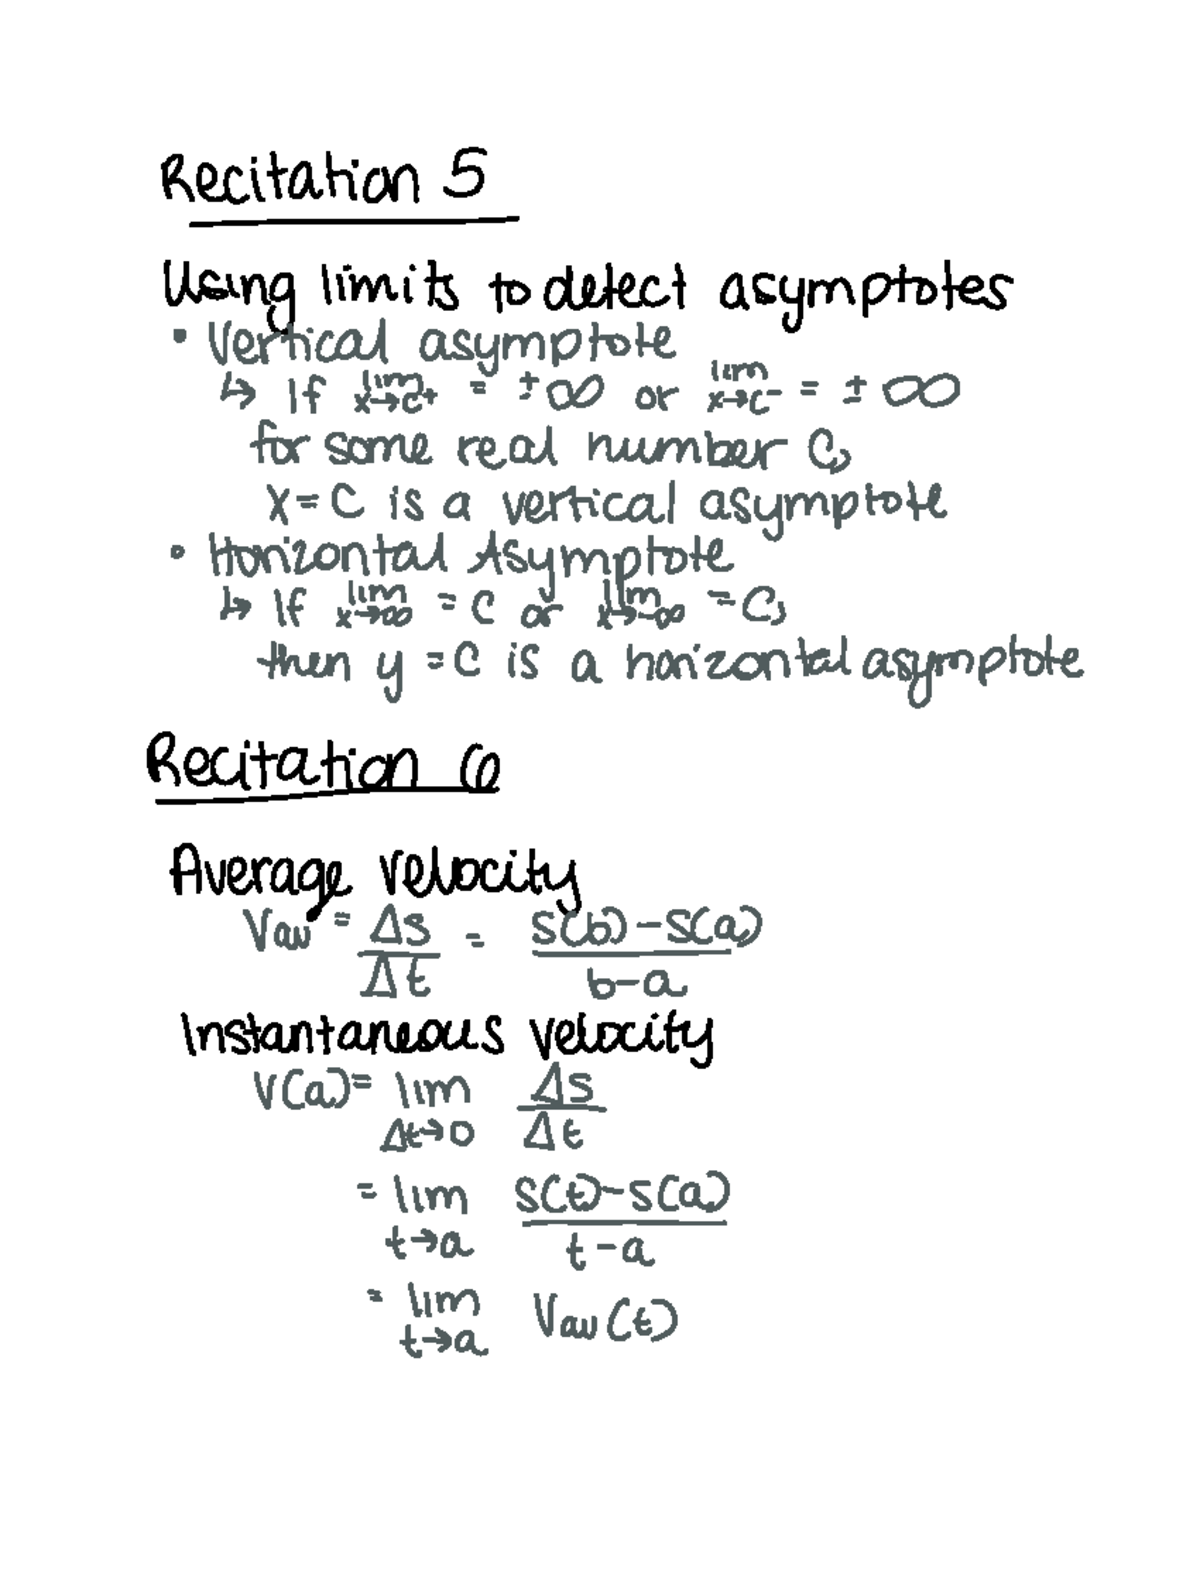 Recitation 5
Using limits to detect asymptotes
• Vertical asymptote
↳ If lim x→c⁺ = ±∞ or lim x→c⁻ = ±∞
for some real number C,
x=C is a vertical asymptote
• Horizontal Asymptote
↳ If lim x→∞ = C or lim x→-∞ = C,
then y = C is a horizontal asymptote
Recitation 6
Average velocity
Vav = Δs/Δt = S(b)-S(a)/b-a
Instantaneous velocity
V(a)= lim Δt→0 Δs/Δt
= lim t→a S(t)-S(a)/t-a
= lim t→a Vav(t)